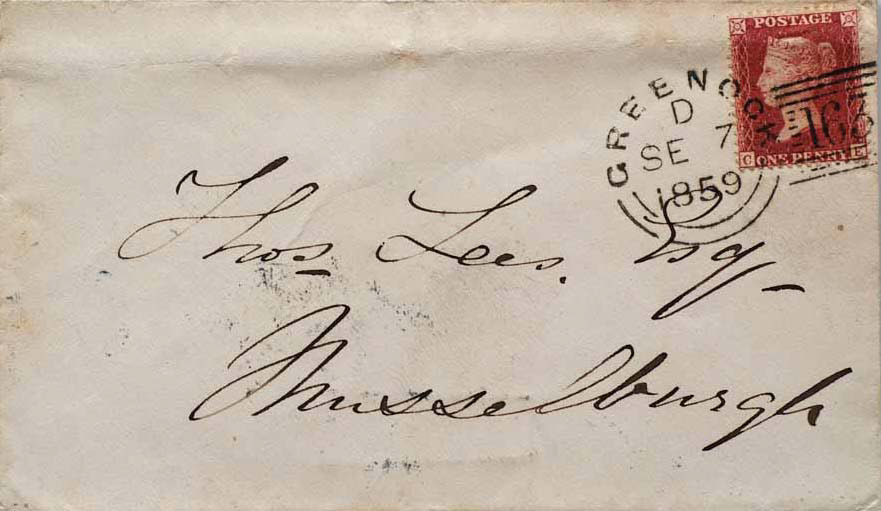 POSTAGE
C ONE PENNY E
GREENOCK
D
SE 7
1859
163
Thos Lees. Esq -
Musselburgh